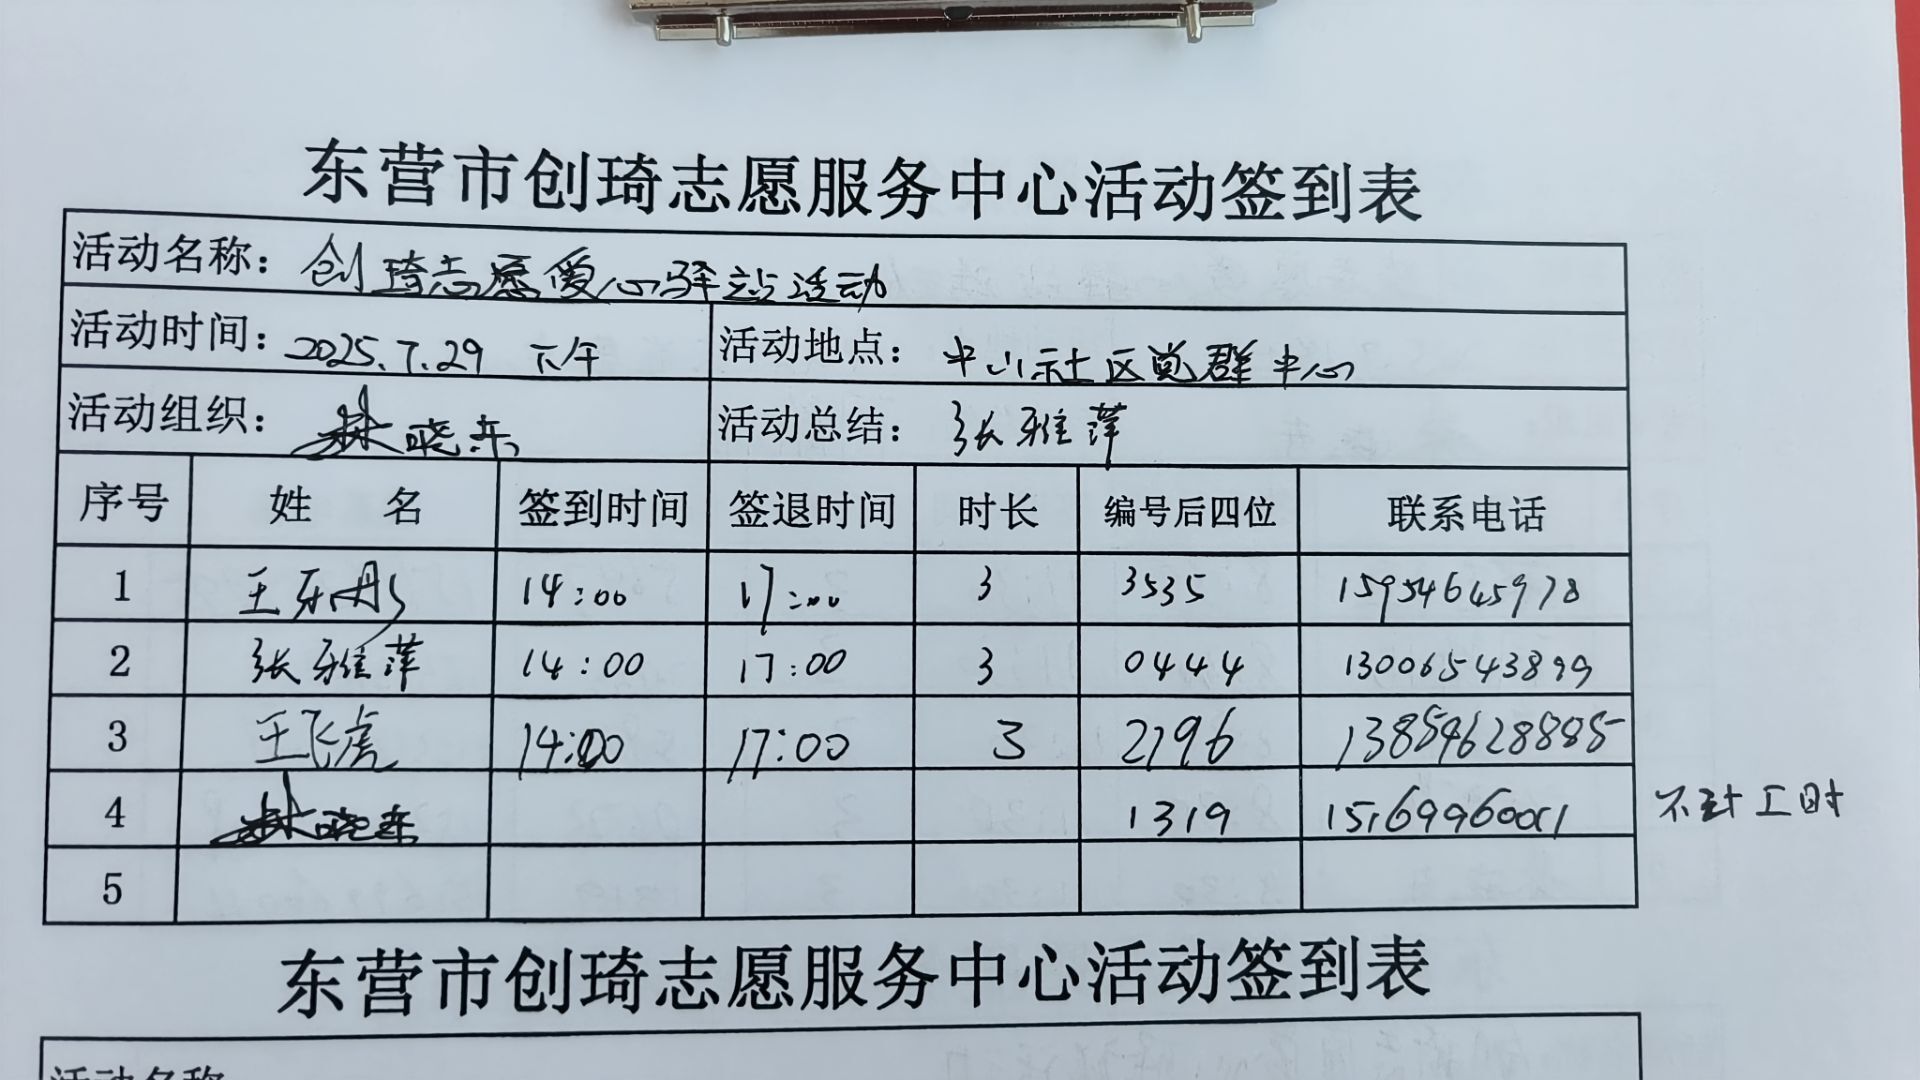 东营市创琦志愿服务中心活动签到表
活动名称：创琦志愿爱心驿站活动
活动时间：2025.7.29 下午 活动地点：中心社区党群中心
活动组织：林晓东 活动总结：张雅萍
序号 姓 名 签到时间 签退时间 时长 编号后四位 联系电话
1 王乐彤 14:00 17:00 3 3535 15954645978
2 张雅萍 14:00 17:00 3 0444 13006543899
3 王飞虎 14:00 17:00 3 2196 13854628885
4 林晓东 1319 15169960011 不计工时
5
东营市创琦志愿服务中心活动签到表
活动名称